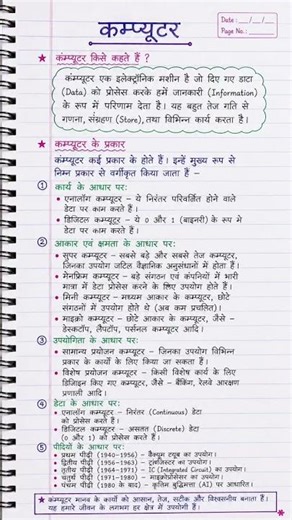 कम्प्यूटर
Date : __/__/__
Page No.: ______
★ कंम्प्यूटर किसे कहते हैं ?
कंम्प्यूटर एक इलेक्ट्रॉनिक मशीन है जो दिए गए डाटा
(Data) को प्रोसेस करके हमें जानकारी (Information)
के रूप में परिणाम देता है। यह बहुत तेज गति से
गणना, संग्रहण (Store), तथा विभिन्न कार्य करता है।
★ कम्प्यूटर के प्रकार
कंम्प्यूटर कई प्रकार के होते हैं। इन्हें मुख्य रूप से
निम्न प्रकार से वर्गीकृत किया जाता हैं –
① कार्य के आधार पर:
• एनालॉग कंम्प्यूटर – ये निरंतर परिवर्तित होने वाले
डेटा पर काम करते हैं।
• डिजिटल कंम्प्यूटर – ये 0 और 1 (बाइनरी) के रूप मे
डेटा पर काम करते हैं।
② आकार एवं क्षमता के आधार पर:
• सुपर कम्प्यूटर – सबसे बड़े और सबसे तेज कम्प्यूटर,
जिनका उपयोग जटिल वैज्ञानिक अनुसंधानों में होता हैं।
• मेनफ्रिम कम्प्यूटर – बड़े संगठन एवं कंपनियों में भारी
मात्रा में डेटा प्रोसेस करने के लिए उपयोग होते हैं।
• मिनी कम्प्यूटर – मध्यम आकार के कम्प्यूटर, छोटे
संगठनों में उपयोग होते थे (अब कम प्रचलित)।
• माइक्रो कम्प्यूटर – छोटे आकार के कम्प्यूटर, जैसे –
डेस्कटॉप, लैपटॉप, पर्सनल कम्प्यूटर आदि।
③ उपयोगिता के आधार पर:
• सामान्य प्रयोजन कम्प्यूटर – जिनका उपयोग विभिन्न
प्रकार के कार्यो के लिए किया जा सकता हैं।
• विशेष प्रयोजन कम्प्यूटर – किसी विशेष कार्य के लिए
डिजाइन किए गए कम्प्यूटर, जैसे – बैंकिंग, रेलवे आरक्षण
प्रणाली आदि।
④ डेटा के आधार पर:
• एनालॉग कम्प्यूटर – निरंतर (Continuous) डेटा
को प्रोसेस करते हैं।
• डिजिटल कम्प्यूटर – असतत (Discrete) डेटा
(0 और 1) को प्रोसेस करते हैं।
⑤ पीढियों के आधार पर:
• प्रथम पीढ़ी (1940–1956) – वैक्यूम ट्यूब का उपयोग।
• द्वितीय पीढ़ी (1956–1963) – ट्रांजिस्टर का उपयोग।
• तृतीय पीढ़ी (1964–1971) – IC (Integrated Circuit) का उपयोग।
• चतुर्थ पीढ़ी (1971–1980) – माइक्रोप्रोसेसर का उपयोग।
• पंचम पीढ़ी (1980 के बाद) – कृत्रिम बुद्धिमत्ता (AI) पर आधारित।
★ कंम्प्यूटर मानव के कार्यों को आसान, तेज, सटीक और विश्वसनीय बनाता हैं।
यह हमारे जीवन के लगभग हर क्षेत्र में उपयोगी हैं।